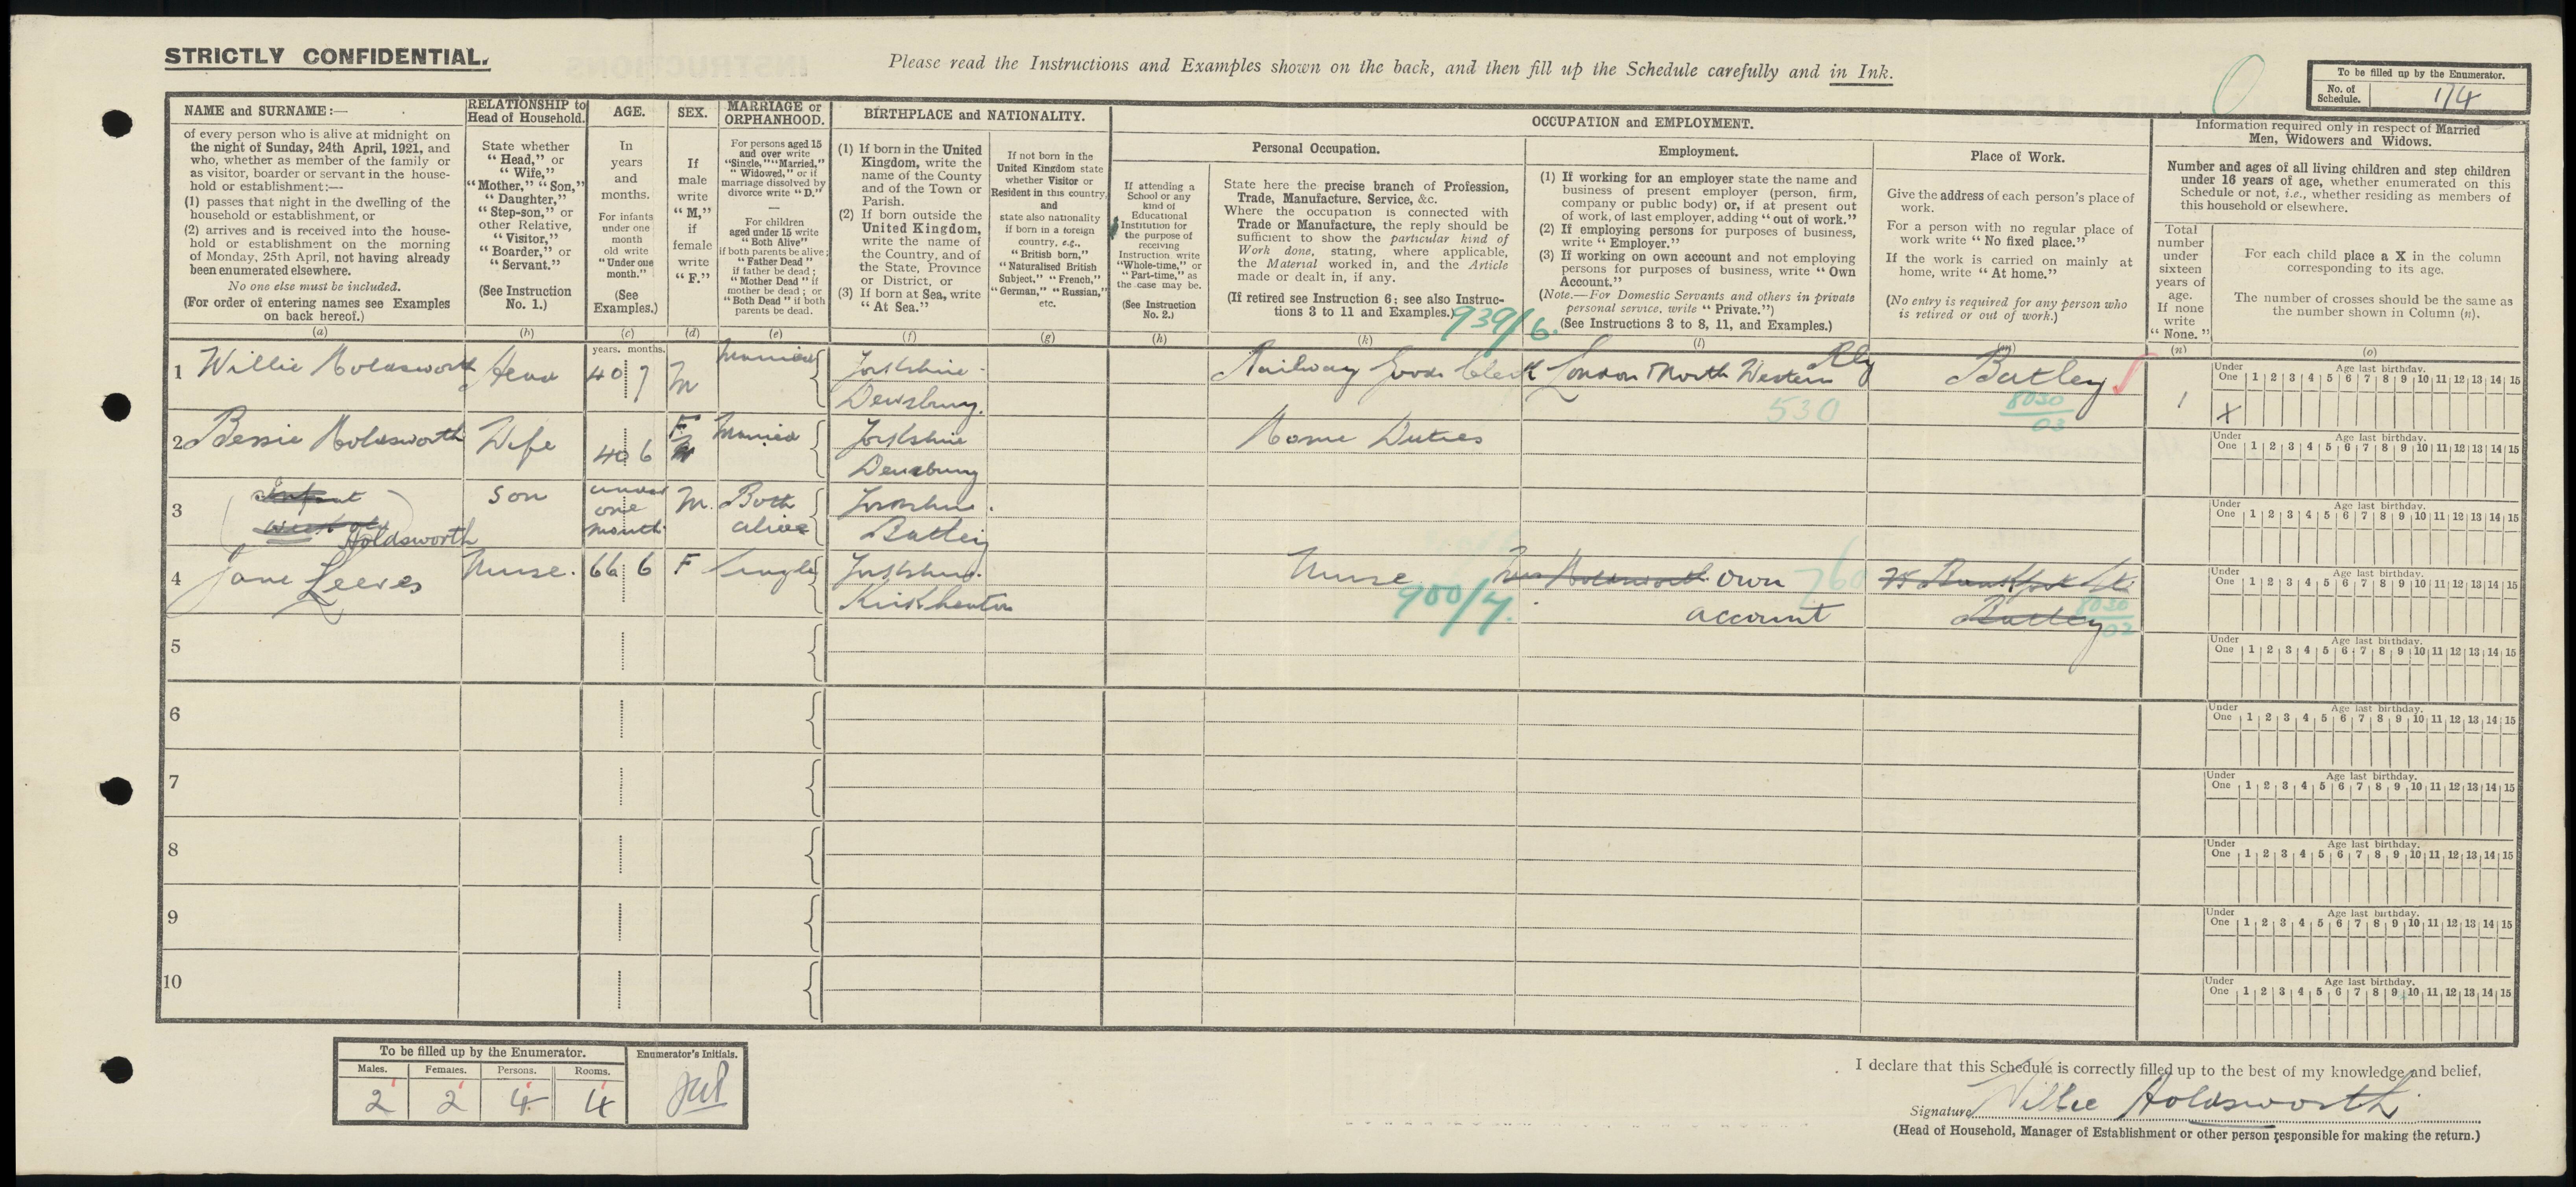 STRICTLY CONFIDENTIAL.
Please read the Instructions and Examples shown on the back, and then fill up the Schedule carefully and in Ink.
To be filled up by the Enumerator.
No. of Schedule. 114
NAME and SURNAME:—
of every person who is alive at midnight on
the night of Sunday, 24th April, 1921, and
who, whether as member of the family or
as visitor, boarder or servant in the house-
hold or establishment:—
(1) passes that night in the dwelling of the
household or establishment, or
(2) arrives and is received into the house-
hold or establishment on the morning
of Monday, 25th April, not having already
been enumerated elsewhere.
No one else must be included.
(For order of entering names see Examples
on back hereof.)
(a)
RELATIONSHIP to
Head of Household.
State whether
"Head," or
"Wife,"
"Mother," "Son,"
"Daughter,"
"Step-son," or
other Relative,
"Visitor,"
"Boarder," or
"Servant."
(See Instruction
No. 1.)
(b)
AGE.
In
years
and
months.
For infants
under one
month
old write
"Under one
month."
(See
Examples.)
(c)
SEX.
If
male
write
"M,"
if
female
write
"F."
(d)
MARRIAGE or
ORPHANHOOD.
For persons aged 15
and over write
"Single," "Married,"
"Widowed," or if
marriage dissolved by
divorce write "D."
For children
aged under 15 write
"Both Alive"
if both parents be alive;
"Father Dead"
if father be dead;
"Mother Dead" if
mother be dead; or
"Both Dead" if both
parents be dead.
(e)
BIRTHPLACE and NATIONALITY.
(1) If born in the United
Kingdom, write the
name of the County
and of the Town or
Parish.
(2) If born outside the
United Kingdom,
write the name of
the Country, and of
the State, Province
or District, or
(3) If born at Sea, write
"At Sea."
(f)
If not born in the
United Kingdom state
whether Visitor or
Resident in this country,
and
state also nationality
if born in a foreign
country, e.g.,
"British born,"
"Naturalised British
Subject," "French,"
"German," "Russian,"
etc.
(g)
OCCUPATION and EMPLOYMENT.
If attending a
School or any
kind of
Educational
Institution for
the purpose of
receiving
Instruction write
"Whole-time," or
"Part-time," as
the case may be.
(See Instruction
No. 2.)
(h)
Personal Occupation.
State here the precise branch of Profession,
Trade, Manufacture, Service, &c.
Where the occupation is connected with
Trade or Manufacture, the reply should be
sufficient to show the particular kind of
Work done, stating, where applicable,
the Material worked in, and the Article
made or dealt in, if any.
(If retired see Instruction 6: see also Instruc-
tions 3 to 11 and Examples.)
(k)
Employment.
(1) If working for an employer state the name and
business of present employer (person, firm,
company or public body) or, if at present out
of work, of last employer, adding "out of work."
(2) If employing persons for purposes of business,
write "Employer."
(3) If working on own account and not employing
persons for purposes of business, write "Own
Account."
(Note.—For Domestic Servants and others in private
personal service, write "Private.")
(See Instructions 3 to 8, 11, and Examples.)
(l)
Place of Work.
Give the address of each person's place of
work.
For a person with no regular place of
work write "No fixed place."
If the work is carried on mainly at
home, write "At home."
(No entry is required for any person who
is retired or out of work.)
(m)
Information required only in respect of Married
Men, Widowers and Widows.
Number and ages of all living children and step children
under 16 years of age, whether enumerated on this
Schedule or not, i.e., whether residing as members of
this household or elsewhere.
Total
number
under
sixteen
years of
age.
If none
write
"None."
(n)
For each child place a X in the column
corresponding to its age.
The number of crosses should be the same as
the number shown in Column (n).
(o)
939/6
years. months.
1 Willie Holdsworth Head 40 7 M Married Yorkshire Dewsbury. Railway Goods Clerk London North Western Rly Batley 1 X
530 8030/03
2 Bessie Holdsworth Wife 40 6 F Married Yorkshire Dewsbury Home Duties
3 Infant
Holdsworth Son under one month M. Both alive Yorkshire Batley
4 Jane Leeves Nurse. 66 6 F Single Yorkshire. Kirkheaton Nurse Mrs Holdsworth own account Batley
900/7. 760 8030/02
5
6
7
8
9
10
Under One 1 2 3 4 5 6 7 8 9 10 11 12 13 14 15
Age last birthday.
To be filled up by the Enumerator.
Males. Females. Persons. Rooms.
2 2 4 4
Enumerator's Initials.
I declare that this Schedule is correctly filled up to the best of my knowledge and belief,
Signature Willie Holdsworth
(Head of Household, Manager of Establishment or other person responsible for making the return.)